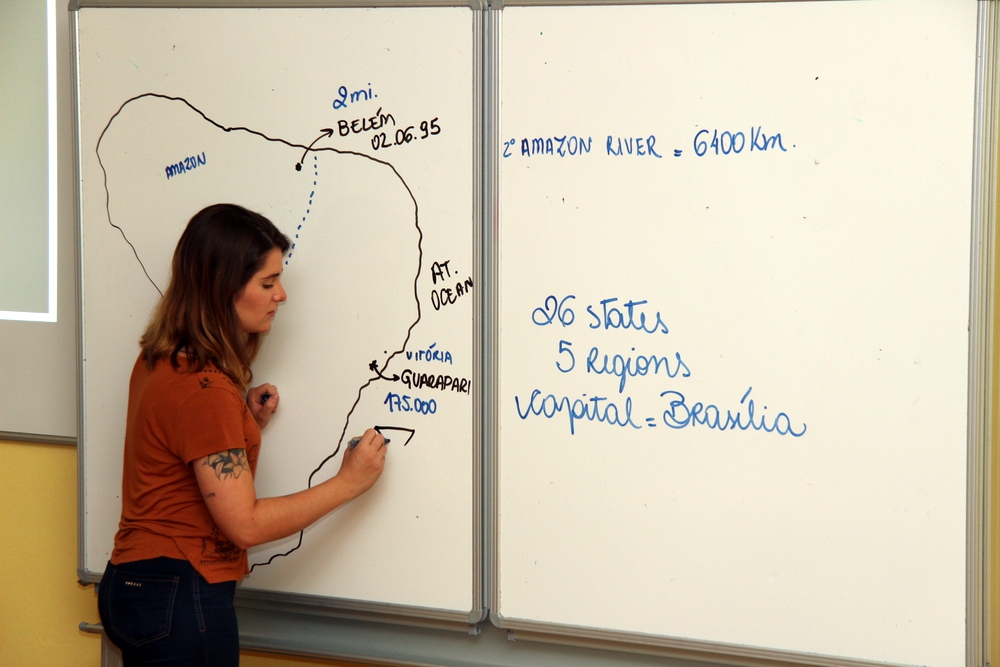 2mi.
BELÉM
02.06.95
AMAZON
AT.
OCEAN
VITÓRIA
GUARAPARI
175.000
2° AMAZON RIVER = 6400 Km.
26 states
5 Regions
Capital = Brasília